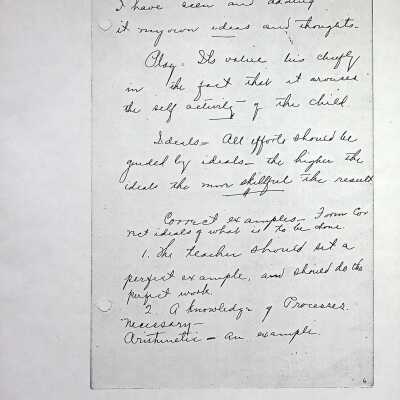 I have seen and adding
it my own ideas and thoughts.
Play: Its value lies chiefly
in the fact that it arouses
the self activity of the child
Ideals = All efforts should be
guided by ideals - the higher the
ideals the more skillful the result
Correct examples - Form Cor
rect ideals of what is to be done.
1. The teacher should set a
perfect example, and should do the
perfect work.
2. A knowledge of Processes.
necessary -
Arithmetic - an example